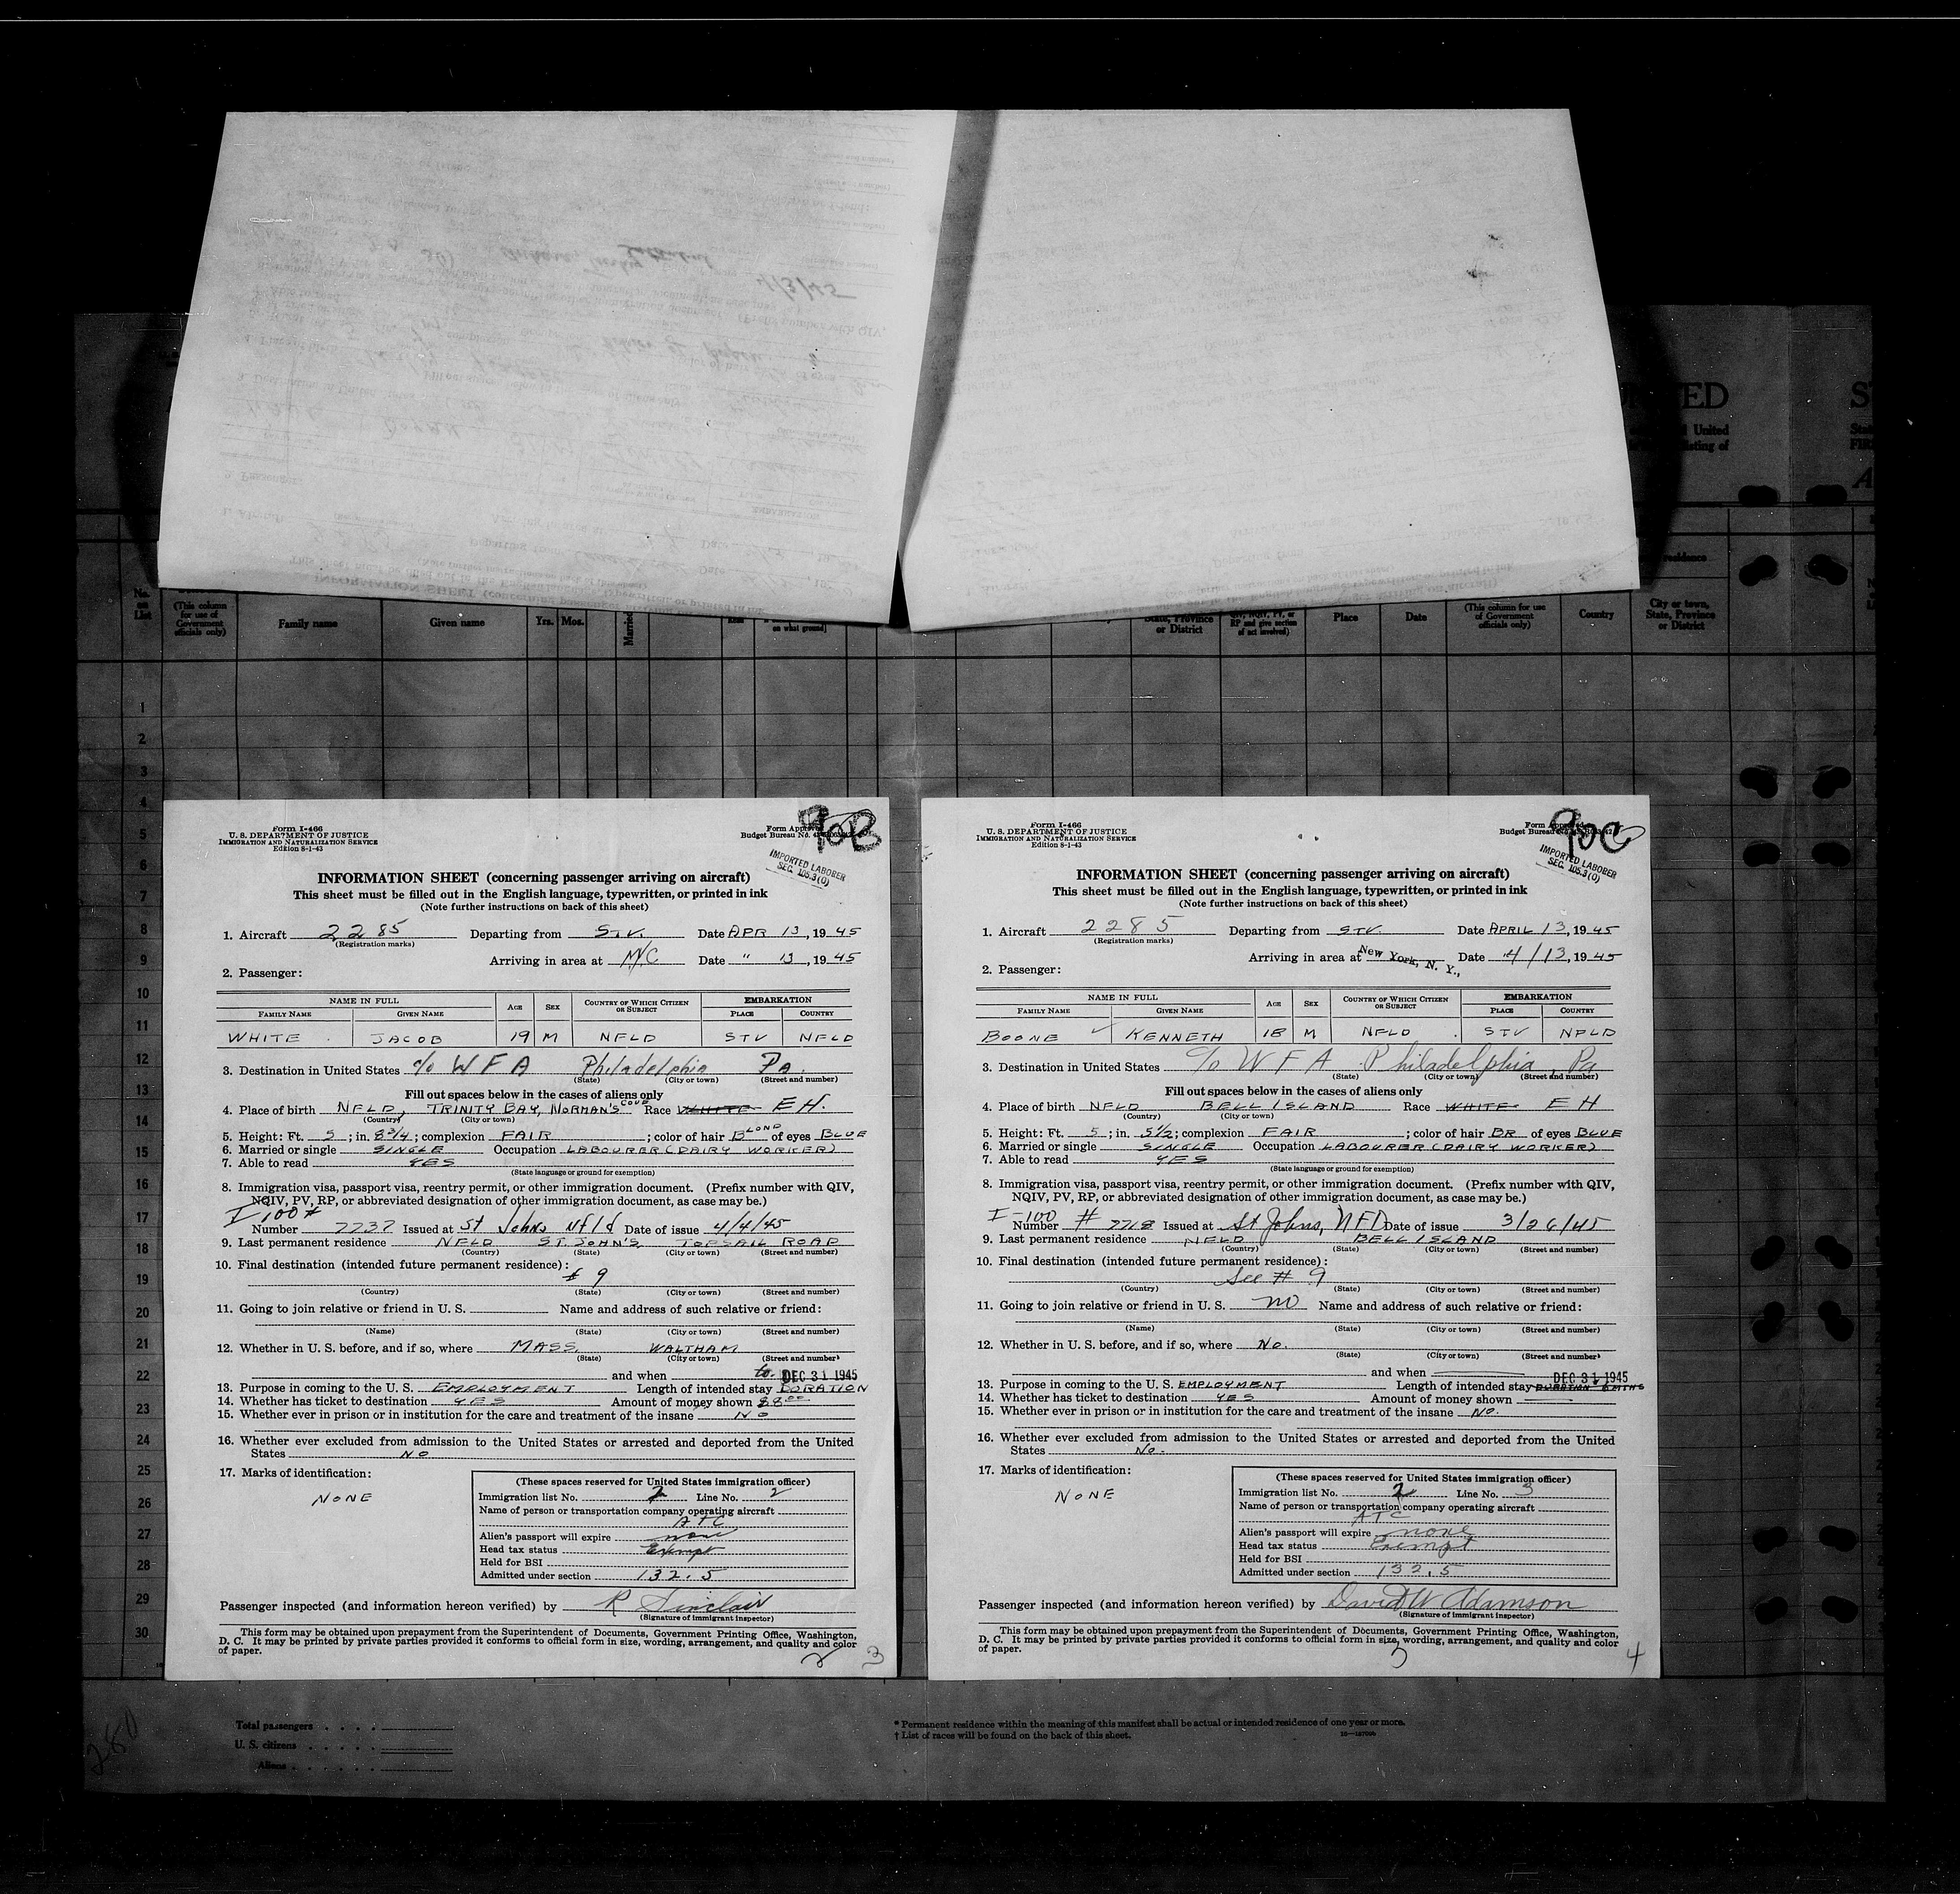 No. on List
(This column for use of Government officials only)
Family name
Given name
Yrs.
Mos.
on what ground)
State, Province or District
RP and give section of act involved)
Place
Date
(This column for use of Government officials only)
Country
City or town, State, Province or District
1
2
3
4
5
6
7
8
9
10
11
12
13
14
15
16
17
18
19
20
21
22
23
24
25
26
27
28
29
30
Form I-466
U. S. DEPARTMENT OF JUSTICE
IMMIGRATION AND NATURALIZATION SERVICE
Edition 8-1-43
Budget Bureau No.
90B
IMPORTED LABORER
SEC. 105.3(0)
INFORMATION SHEET (concerning passenger arriving on aircraft)
This sheet must be filled out in the English language, typewritten, or printed in ink
(Note further instructions on back of this sheet)
1. Aircraft 2285 Departing from STV. Date APR 13, 19 45
(Registration marks)
Arriving in area at NYC Date " 13, 19 45
2. Passenger:
NAME IN FULL AGE SEX COUNTRY OF WHICH CITIZEN OR SUBJECT EMBARKATION
FAMILY NAME GIVEN NAME PLACE COUNTRY
WHITE JACOB 19 M NFLD STV NFLD
3. Destination in United States c/o W F A Philadelphia Pa.
(State) (City or town) (Street and number)
Fill out spaces below in the cases of aliens only
4. Place of birth NFLD, TRINITY BAY, NORMAN'S COVE Race WHITE EH.
(Country) (City or town)
5. Height: Ft. 5 ; in. 8 3/4 ; complexion FAIR ; color of hair BLOND of eyes BLUE
6. Married or single SINGLE Occupation LABOURER (DAIRY WORKER)
7. Able to read YES
(State language or ground for exemption)
8. Immigration visa, passport visa, reentry permit, or other immigration document. (Prefix number with QIV,
NQIV, PV, RP, or abbreviated designation of other immigration document, as case may be.)
I-100 #
Number 7737 Issued at St Johns Nfld Date of issue 4/4/45
9. Last permanent residence NFLD ST. JOHN'S, TOPSAIL ROAD
(Country) (State) (City or town) (Street and number)
10. Final destination (intended future permanent residence):
# 9
(Country) (State) (City or town) (Street and number)
11. Going to join relative or friend in U. S. Name and address of such relative or friend:
(Name) (State) (City or town) (Street and number)
12. Whether in U. S. before, and if so, where MASS. WALTHAM
(State) (City or town) (Street and number)
and when to DEC 31 1945
13. Purpose in coming to the U. S. EMPLOYMENT Length of intended stay DURATION
14. Whether has ticket to destination YES Amount of money shown $8.00
15. Whether ever in prison or in institution for the care and treatment of the insane NO
16. Whether ever excluded from admission to the United States or arrested and deported from the United
States NO
17. Marks of identification:
NONE
(These spaces reserved for United States immigration officer)
Immigration list No. 2 Line No. 2
Name of person or transportation company operating aircraft
ATC
Alien's passport will expire none
Head tax status Exempt
Held for BSI
Admitted under section 132.5
Passenger inspected (and information hereon verified) by R Sinclair
(Signature of immigrant inspector)
This form may be obtained upon prepayment from the Superintendent of Documents, Government Printing Office, Washington,
D. C. It may be printed by private parties provided it conforms to official form in size, wording, arrangement, and quality and color
of paper.
2 3
Form I-466
U. S. DEPARTMENT OF JUSTICE
IMMIGRATION AND NATURALIZATION SERVICE
Edition 8-1-43
Budget Bureau
90C
IMPORTED LABORER
SEC. 105.3(0)
INFORMATION SHEET (concerning passenger arriving on aircraft)
This sheet must be filled out in the English language, typewritten, or printed in ink
(Note further instructions on back of this sheet)
1. Aircraft 2285 Departing from STV Date APRIL 13, 19 45
(Registration marks)
Arriving in area at New York, N. Y., Date 4/13, 19 45
2. Passenger:
NAME IN FULL AGE SEX COUNTRY OF WHICH CITIZEN OR SUBJECT EMBARKATION
FAMILY NAME GIVEN NAME PLACE COUNTRY
BOONE KENNETH 18 M NFLD STV NFLD
3. Destination in United States c/o W F A Philadelphia, Pa
(State) (City or town) (Street and number)
Fill out spaces below in the cases of aliens only
4. Place of birth NFLD BELL ISLAND Race WHITE EH
(Country) (City or town)
5. Height: Ft. 5 ; in. 5 1/2 ; complexion FAIR ; color of hair BR of eyes BLUE
6. Married or single SINGLE Occupation LABOURER (DAIRY WORKER)
7. Able to read YES
(State language or ground for exemption)
8. Immigration visa, passport visa, reentry permit, or other immigration document. (Prefix number with QIV,
NQIV, PV, RP, or abbreviated designation of other immigration document, as case may be.)
I-100
Number # 7718 Issued at St Johns, NFD Date of issue 3/26/45
9. Last permanent residence NFLD BELL ISLAND
(Country) (State) (City or town) (Street and number)
10. Final destination (intended future permanent residence):
See # 9
(Country) (State) (City or town) (Street and number)
11. Going to join relative or friend in U. S. no Name and address of such relative or friend:
(Name) (State) (City or town) (Street and number)
12. Whether in U. S. before, and if so, where No.
(State) (City or town) (Street and number)
and when DEC 31 1945
13. Purpose in coming to the U. S. EMPLOYMENT Length of intended stay
14. Whether has ticket to destination YES Amount of money shown
15. Whether ever in prison or in institution for the care and treatment of the insane No.
16. Whether ever excluded from admission to the United States or arrested and deported from the United
States No.
17. Marks of identification:
NONE
(These spaces reserved for United States immigration officer)
Immigration list No. 2 Line No. 3
Name of person or transportation company operating aircraft
ATC
Alien's passport will expire none
Head tax status Exempt
Held for BSI
Admitted under section 132.5
Passenger inspected (and information hereon verified) by David W Adamson
(Signature of immigrant inspector)
This form may be obtained upon prepayment from the Superintendent of Documents, Government Printing Office, Washington,
D. C. It may be printed by private parties provided it conforms to official form in size, wording, arrangement, and quality and color
of paper.
3 4
Total passengers
U. S. citizens
Aliens
* Permanent residence within the meaning of this manifest shall be actual or intended residence of one year or more.
† List of races will be found on the back of this sheet.